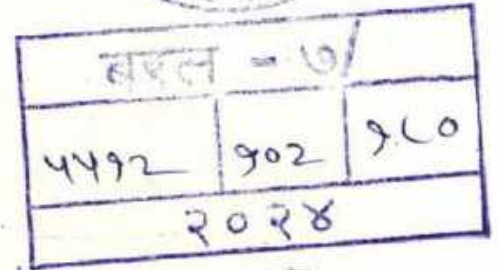 बरल - ७/
५५१२ १०२ १८०
२०२४